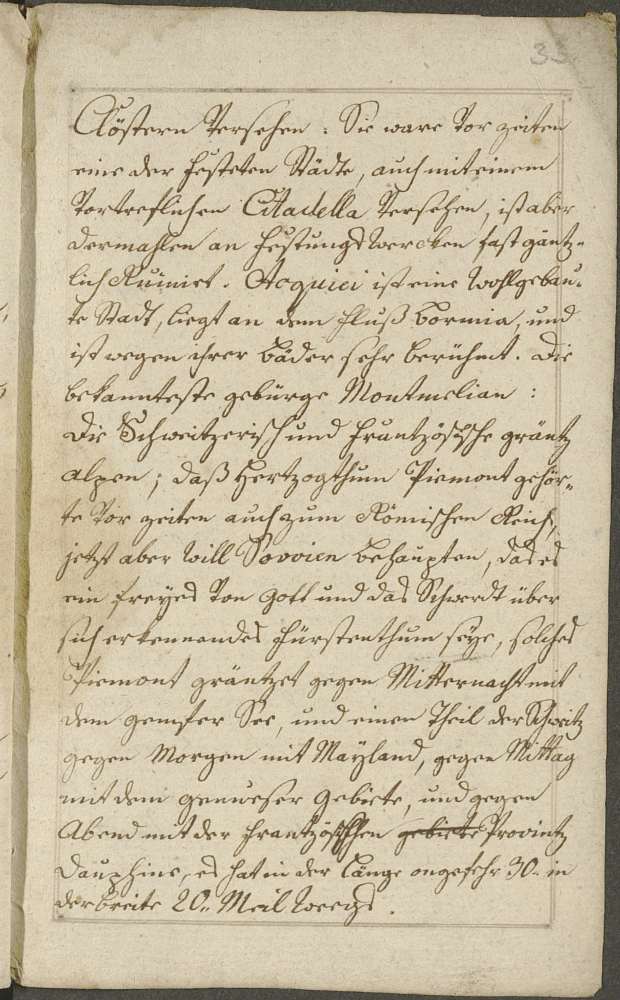 33.
Clöstern Versehen: Sie ware Vor zeiten
eine der festeten Städte, auch mit einem
Vortreflichen Citadella Versehen, ist aber
dermahlen an Festungs Wercken fast gäntz-
lich Ruiniet. Aoquiei ist eine Wohlgebau-
te Stadt, liegt an dem Fluß Bormia, und
ist wegen ihrer Bäder sehr berühmt. Die
bekannteste gebürge Montmelian:
Die Schweitzerisch und Frantzösische gräntz
alpen; daß Hertzogthum Piemont gehör-
te Vor zeiten auch zum Römischen Reich,
jetzt aber Will Sovoien behaupten, das es
ein freyes Von Gott und das Schwerdt über
sich erkennendes Fürstenthum seye, solches
Piemont gräntzet gegen Mitternacht mit
dem genfer See, und einen Theil der Schweitz
gegen Morgen mit Mayland, gegen Mittag
mit dem genueser Gebiete, und gegen
Abend mit der Frantzösischen gebiete Provintz
Dauphine, es hat in der Länge ongefehr 30. in
der breite 20. Meil Weegs.